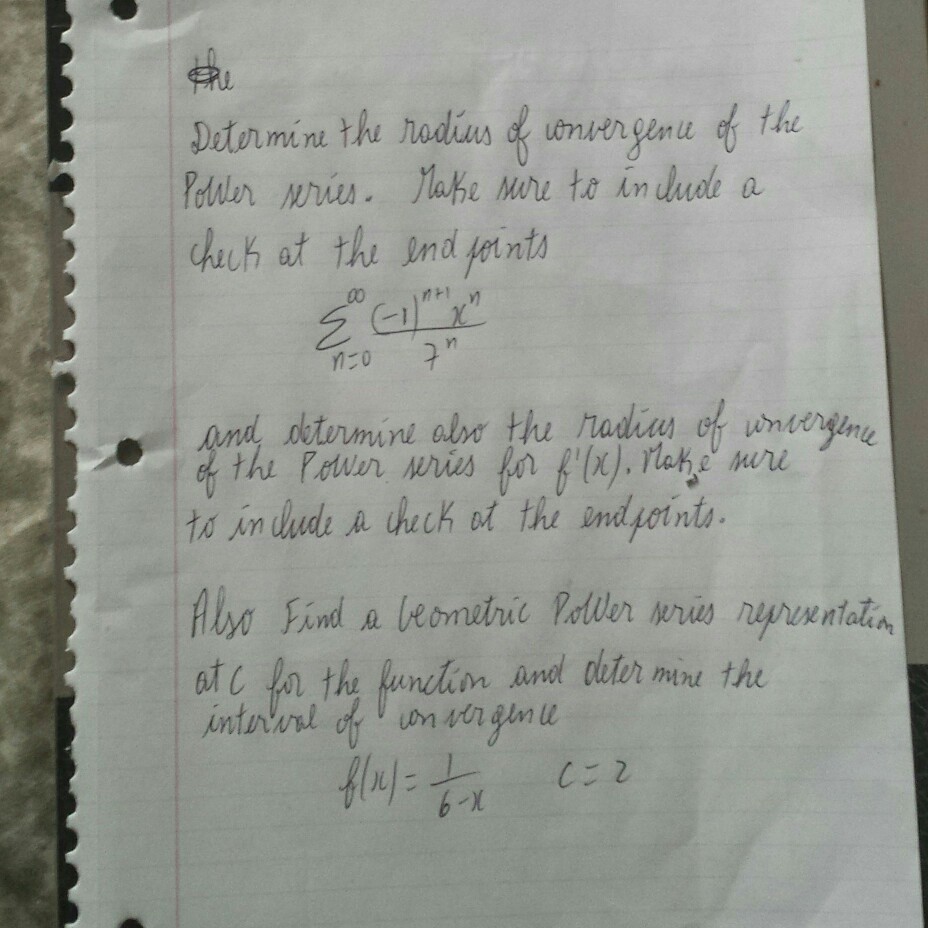 the
Determine the radius of convergence of the
Power series. Make sure to include a
check at the end points
∞ (-1)^{n+1} x^n
Σ
n=0 7^n
and determine also the radius of convergence
of the Power series for f'(x). Make sure
to include a check at the endpoints.
Also Find a Geometric Power series representation
at c for the function and determine the
interval of convergence
f(x) = 1/(6-x) C = 2